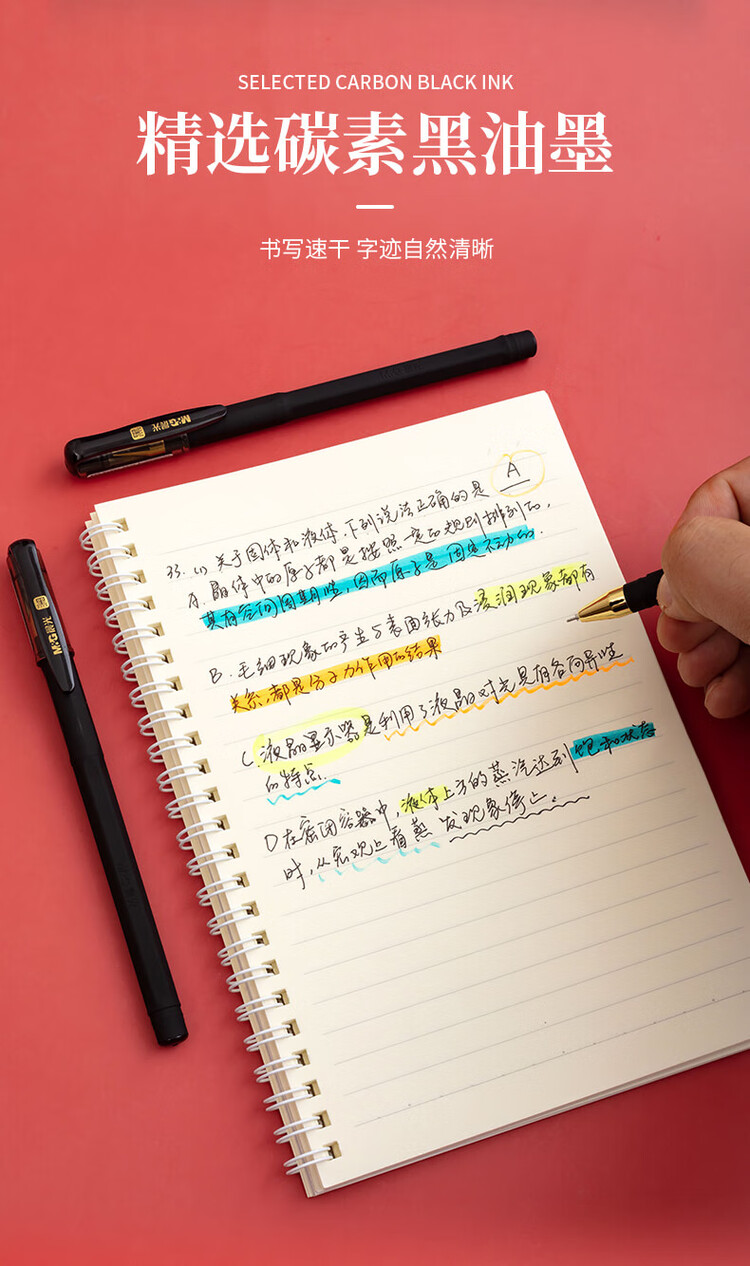 SELECTED CARBON BLACK INK
精选碳素黑油墨
书写速干 字迹自然清晰
M&G晨光
M&G晨光
A
33. (1) 关于固体和液体，下列说法正确的是
A. 晶体中的原子都是按照一定的规则排列的，
其有空间周期性，因而原子是固定不动的.
B. 毛细现象的产生与表面张力及浸润现象都有
关系，都是分子力作用的结果
C 液晶显示器是利用了液晶对光具有各向异性
的特点.
D 在密闭容器中，液体上方的蒸汽达到饱和状态
时，从宏观上看蒸发现象停止.